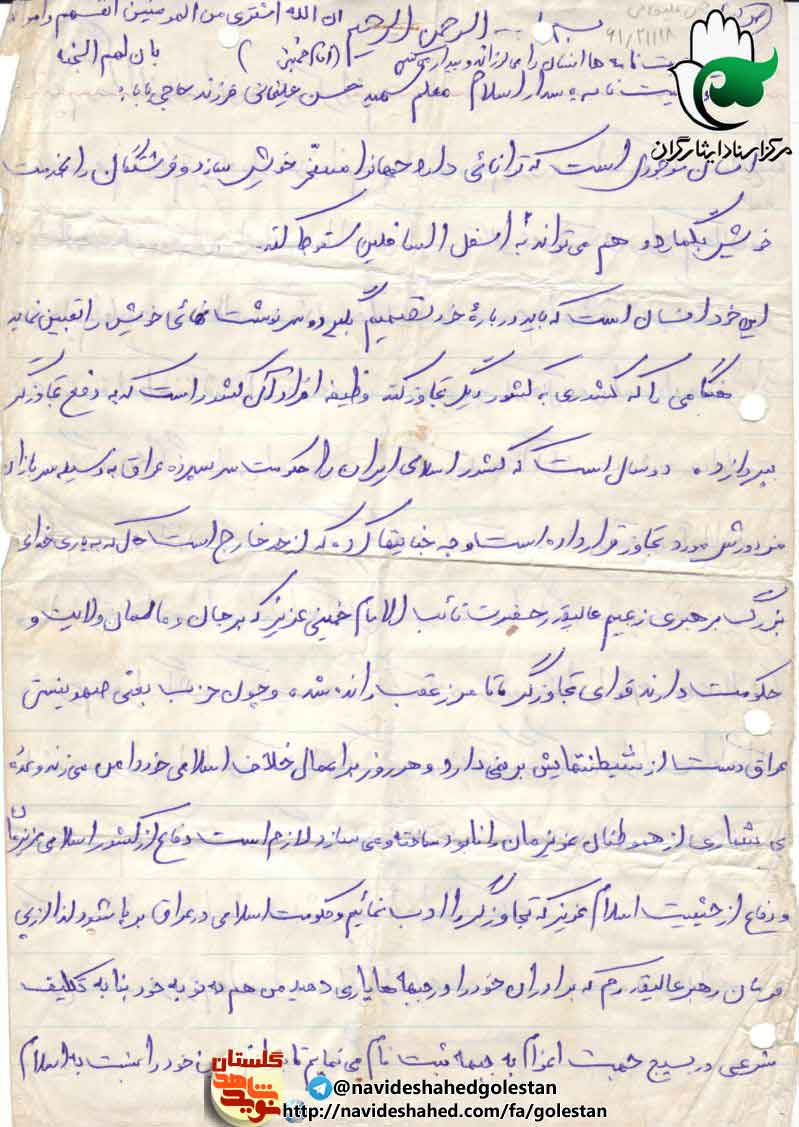 بسم الله الرحمن الرحیم ان الله اشتری من المومنین انفسهم و اموالهم
بان لهم الجنه
۶۱/۲/۱۱۸
نامه ها انسان را می لرزاند و بیدار می کند (امام خمینی)
وصیت نامه پاسدار اسلام معلم شهید حسن علیخانی فرزند حاجی بابا :
مرکز اسناد ایثارگران
انسان موجودی است که توانائی دارد جهان را مسخر خویش سازد و فرشتگان را بخدمت
خویش بگمارد و هم می تواند به اسفل السافلین سقوط کند.
این خود انسان است که باید درباره خود تصمیم بگیرد و سرنوشت نهائی خویش را تعیین نماید
هنگامی را که کشوری به کشور دیگر تجاوز کند وظیفه افراد آن کشور است که به دفع تجاوزگر
بپردازد. دو سال است که کشور اسلامی ایران را حکومت سرسپرده عراق به وسیله سربازان
مزدورش مورد تجاوز قرار داده است و چه جنایتها کرده که از حد خارج است حال که به یاری خدای
بزرگ برهبری زعیم عالیقدر حضرت نائب الامام خمینی عزیز که بر جان و مالمان ولایت و
حکومت دارند قوای تجاوزگر تا مرز عقب رانده شده و چون حزب بعثی صهیونیستی
عراق دست از شیطنتهایش بر نمی دارد و هر روز به اعمال خلاف اسلامی خود دامن می زند و عده
ی بیشماری از هموطنان عزیزمان را نابود ساخته و می سازد لازم است دفاع از کشور اسلامی عزیزمان
و دفاع از حیثیت اسلام عزیز که تجاوزگر را ادب نمائیم و حکومت اسلامی در عراق بر پا شود لذا از پی
فرمان رهبر عالیقدرم که برادران خود را در جبهه ها یاری دهید من هم به نوبه خود بنا به تکلیف
شرعی در بسیج جهت اعزام به جبهه ثبت نام می نمایم تا خود را نسبت به اسلام
گلستان
نوید شاهد
@navideshahedgolestan
http://navideshahed.com/fa/golestan